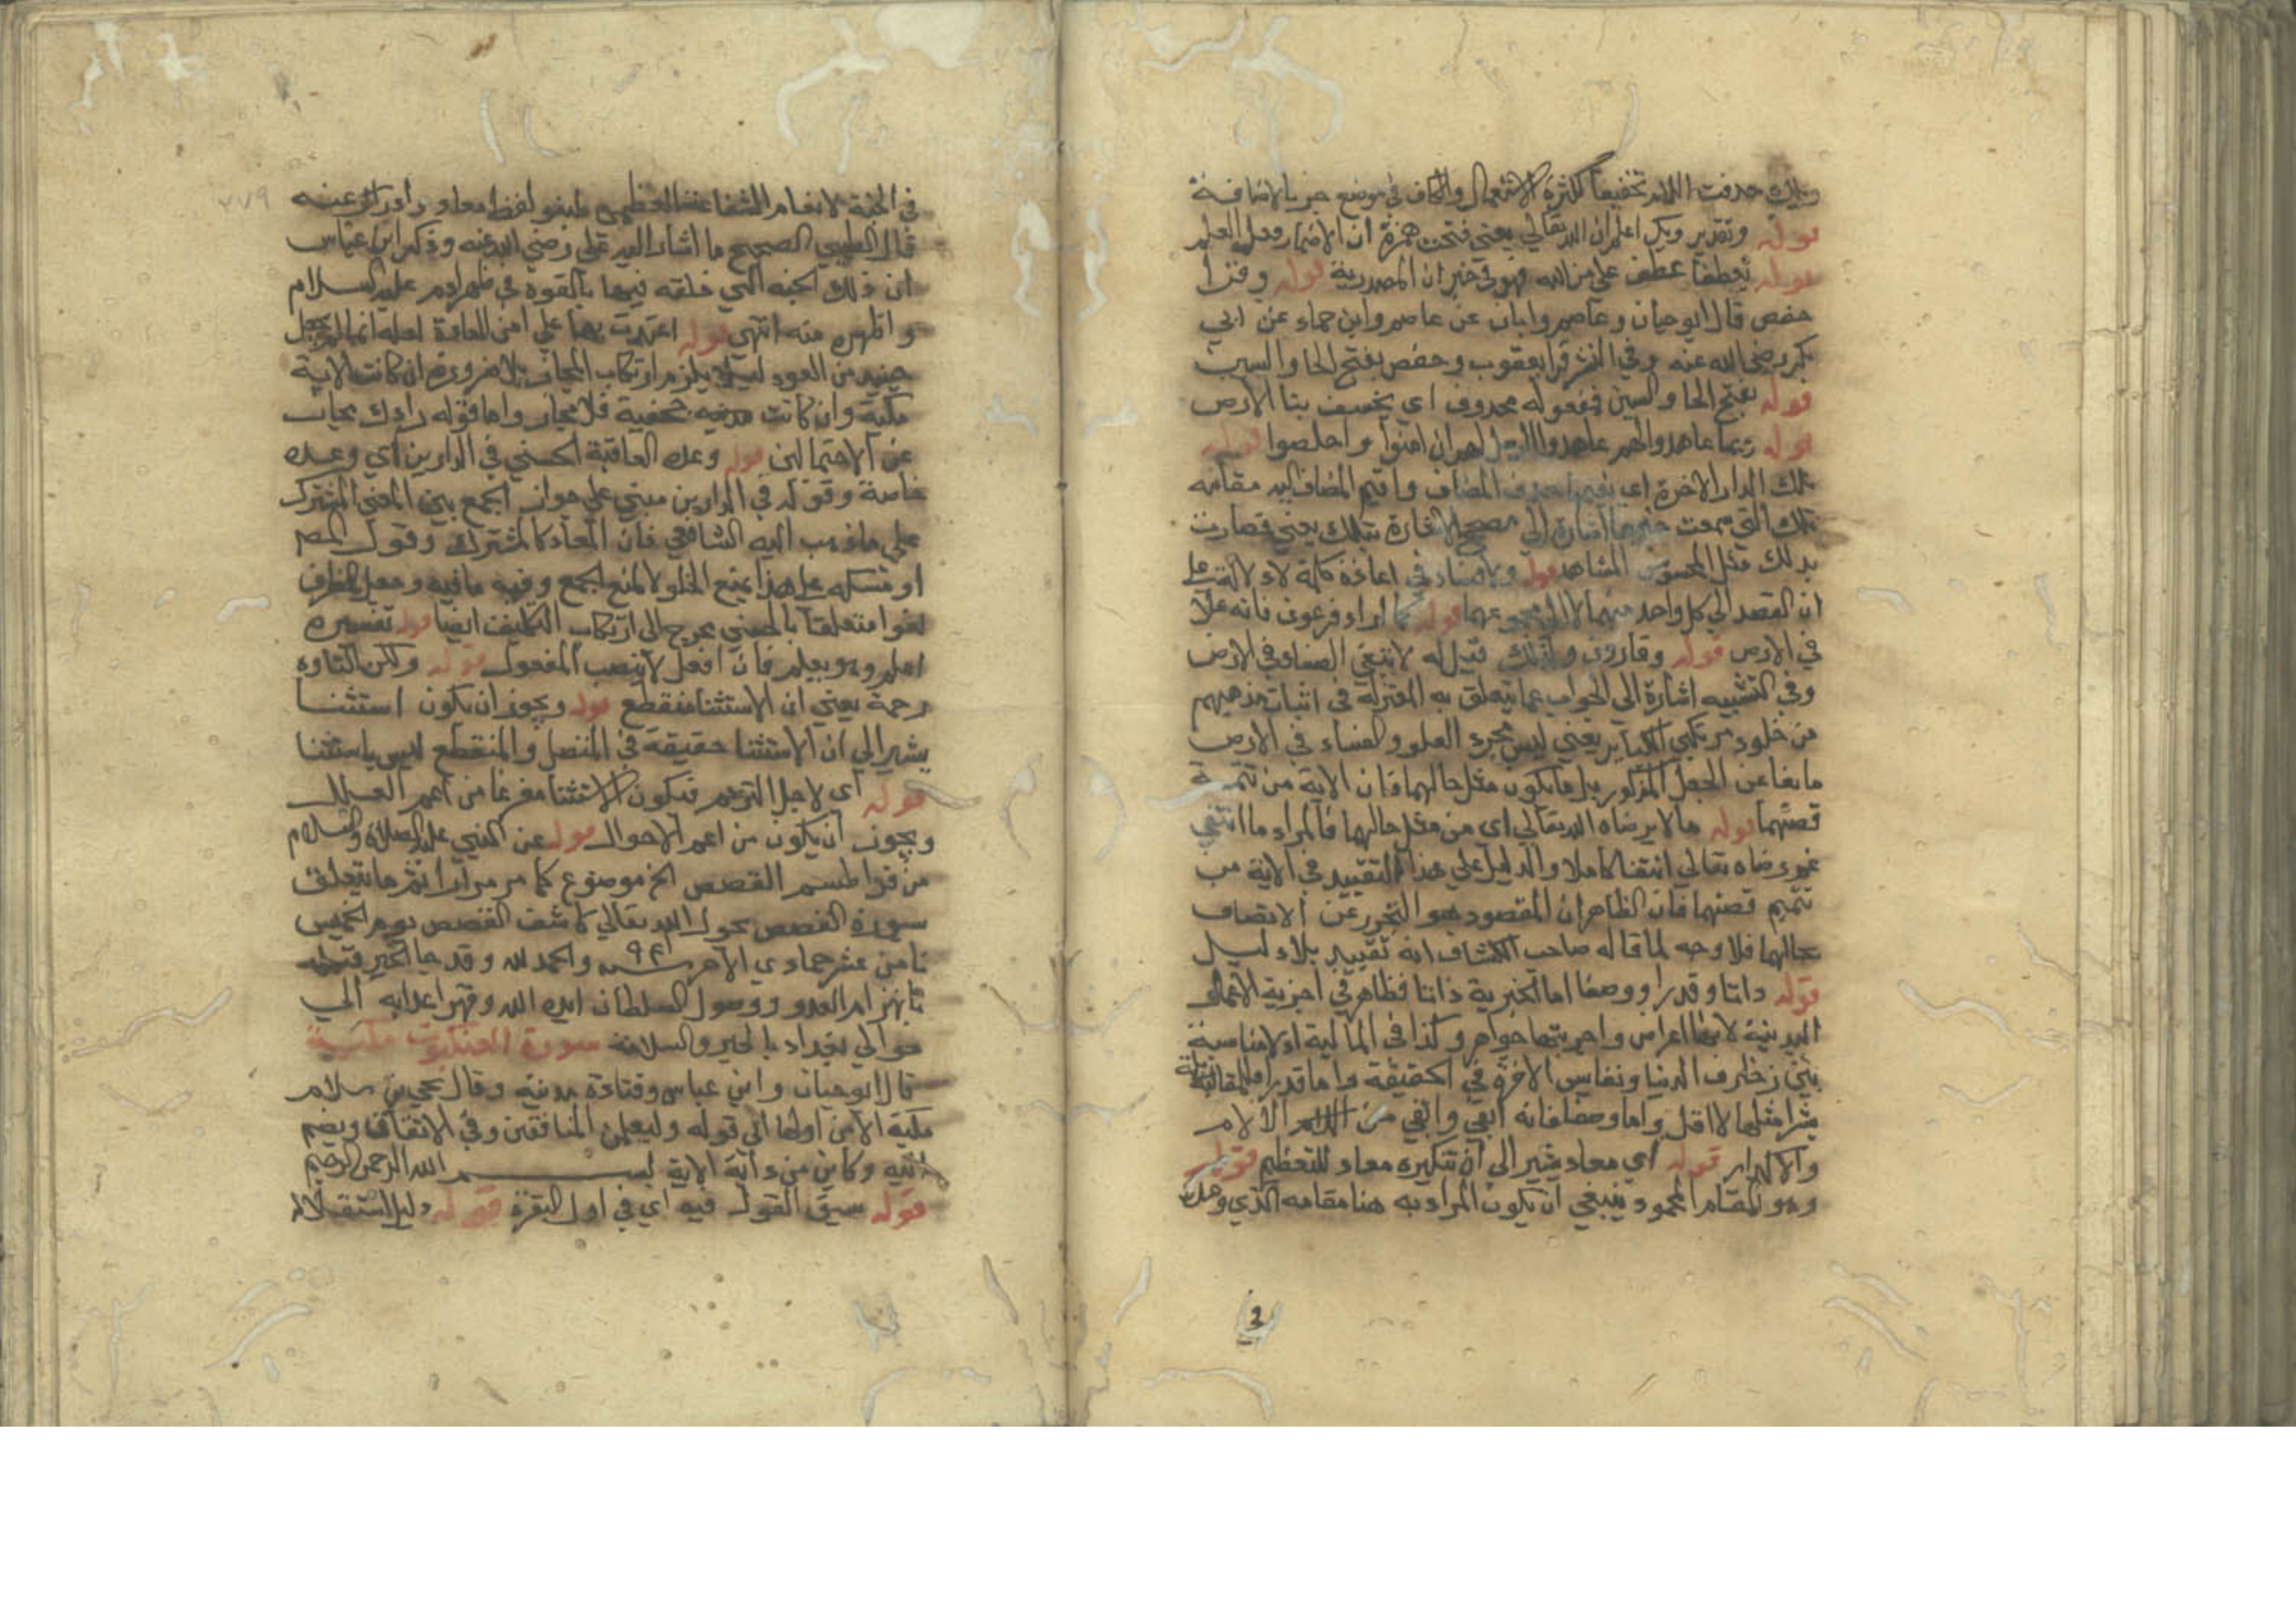 ويلك حذفت اللام تخفيفا لكثرة الاستعمال والكاف في موضع جر بالاضافة
قوله وتقدير ويك اعلم ان الله تعالى يعني فتحت همزة ان لاضمار فعل العلم
قوله تعطفا عطف علي من الله فهو في خبر ان المصدرية قوله وقرا
حفص قال ابو حيان وعاصم وابان عن عاصم وابن حماد عن ابي
بكر رضي الله عنه وفي النشر قرا يعقوب وحفص بفتح الخا والسين
قوله بفتح الخا والسين فمفعوله محذوف اي يخسف بنا الارض
قوله ربما عاهدوا لهم ان امنوا واخلصوا قوله
تلك الدار الاخرة اي نعيمها حذف المضاف واقيم المضاف اليه مقامه
تلك التي سمعت خبرها اشارة الي مصحح الاشارة بتلك يعني فصارت
بذلك مثل المحسوس المشاهد قوله ولا فسادا في اعادة كلمة لا دلالة علي
ان القصد الي كل واحد منهما لا الي مجموعهما قوله كما اراد فرعون فانه علا
في الارض قوله وقارون ولذلك قيل له لا تبغي الفساد في الارض
وفي التشبيه اشارة الي الجواب عما يتعلق به المعتزلة في اثبات مذهبهم
من خلود مرتكبي الكباير يعني ليس مجرد العلو والفساد في الارض
مانعا عن الجعل المذكور بل ما يكون مثل حالهما فان الاية من تتمة
قصتهما قوله ما لا يرضاه الله تعالي اي من مثل حالهما فالمراد ما انتفي
عنه رضاه تعالي انتفا كاملا والدليل علي هذا التقييد في الاية من
تتميم قصتهما فان الظاهر ان المقصود هو التحرز عن الاتصاف
بحالهما فلا وجه لما قاله صاحب الكشاف انه تقييد بلا دليل
قوله ذاتا وقدرا ووصفا اما الخيرية ذاتا فظاهر في اجزية الاعمال
البدنية لانها اعراض واجزيتها جواهر وكذا في المالية اذ لا مناسبة
بين زخارف الدنيا ونفايس الاخرة في الحقيقة واما قدرا فللمقابلة
بعشر امثلها لا اقل واما وصفا فانه ابقي وانقي من الالام
والاكدار قوله اي معاد يشير الي ان تنكيره معاد للتعظيم قوله
وهو المقام المحمود ينبغي ان يكون المراد به هنا مقامه الذي وعدك
في الجنة لا مقام الشفاعة العظمي لنبو لفظ معاد ورادك عنه
قال الطيبي الصحيح ما اشار اليه علي رضي الله عنه وذكر ابن عباس
ان ذلك الجنة التي خلقه فيها بالقوة في ظهر ادم عليه السلام
واظهره منه انتهي قوله اعتدت بها علي ان من العادة لعله انما لم يجعل
حينيذ من العود ليلا يلزم ارتكاب المجاز بلا ضرورة ان كانت الاية
مكية وان كانت جحفية فلا مجاز واما قوله رادك بحيث
عن الاحتمالين قوله وعده العاقبة الحسني في الدارين اي وعده
خاصة وقوله في الدارين مبني علي جواز الجمع بين المعني المشترك
علي ما ذهب اليه الشافعي فان المعاد كالمشترك وقول المص
او تمسكه علي هذا يمنع الخلو لا لمنع الجمع وفيه ما فيه وجعل الظرف
لغوا متعلقا بالحسني يحوج الي ارتكاب التكليف ايضا قوله تفسيره
اعلم وهو يعلم فان افعل لا ينصب المفعول قوله ولكن القاه
رحمة يعني ان الاستثنا منقطع قوله ويجوز ان يكون استثنا
يشير الي ان الاستثنا حقيقة في المتصل والمنقطع ليس باستثنا
قوله اي لاجل الترحم فيكون الاستثنا مفرغا من اعم العلل
ويجوز ان يكون من اعم الاحوال قوله عن النبي عليه الصلاة والسلام
من قرا طسم القصص الخ موضوع كما مر مرارا تم ما يتعلق
سورة القصص بحول الله تعالي كاشف الغصص يوم الخميس
ثامن عشر جمادي الاخر سنة ٩٤١ والحمد لله وقد جا الخبر قبله
بانهزام العدو ووصول السلطان ايده الله وقهر اعداءه الي
حوالي بغداد بالخير والسلامة سورة العنكبوت مكية
قال ابو حيان وابن عباس وقتادة مدنية وقال يحيي بن سلام
مكية الا من اولها الي قوله وليعلمن المنافقين وفي الاتقان ويضم
اليه وكاين من دابة الاية بسم الله الرحمن الرحيم
قوله سبق القول فيه اي في اول البقرة قوله دليل استقلاله